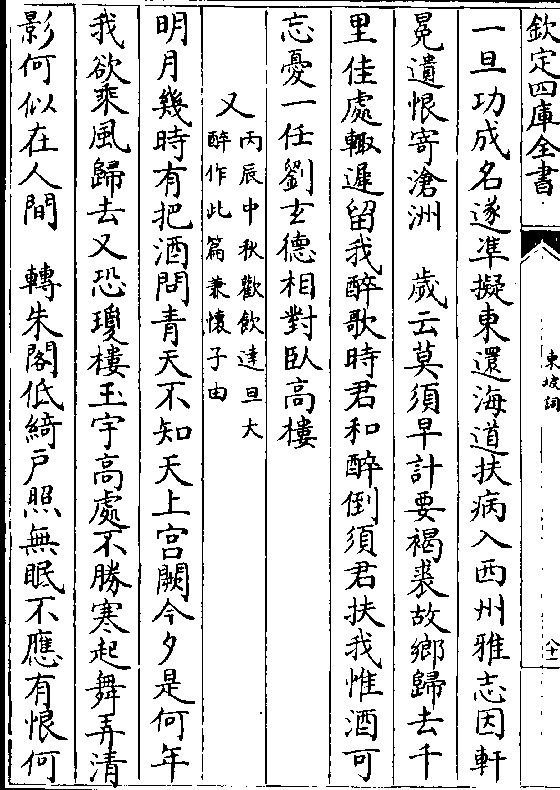 欽定四庫全書
東坡詞
一旦功成名遂凖擬東還海道扶病入西州雅志因軒
冕遺恨寄滄洲　歲云莫須早計要褐裘故鄉歸去千
里佳處輙遲留我醉歌時君和醉倒須君扶我惟酒可
忘憂一任劉玄德相對臥高樓
又丙辰中秋歡飲達旦大
醉作此篇兼懷子由
明月幾時有把酒問青天不知天上宫闕今夕是何年
我欲乘風歸去又恐瓊樓玉宇高處不勝寒起舞弄清
影何似在人間　轉朱閣低綺戶照無眠不應有恨何